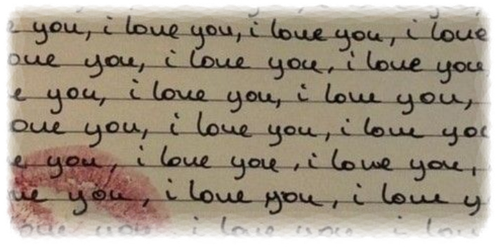 e you, i love you, i love you, i love
ove you, i love you, i love you
e you, i love you, i love you,
ove you, i love you, i love yo
e you, i love you, i love you,
ve you, i love you, i love y
ove you, i love you, i lov